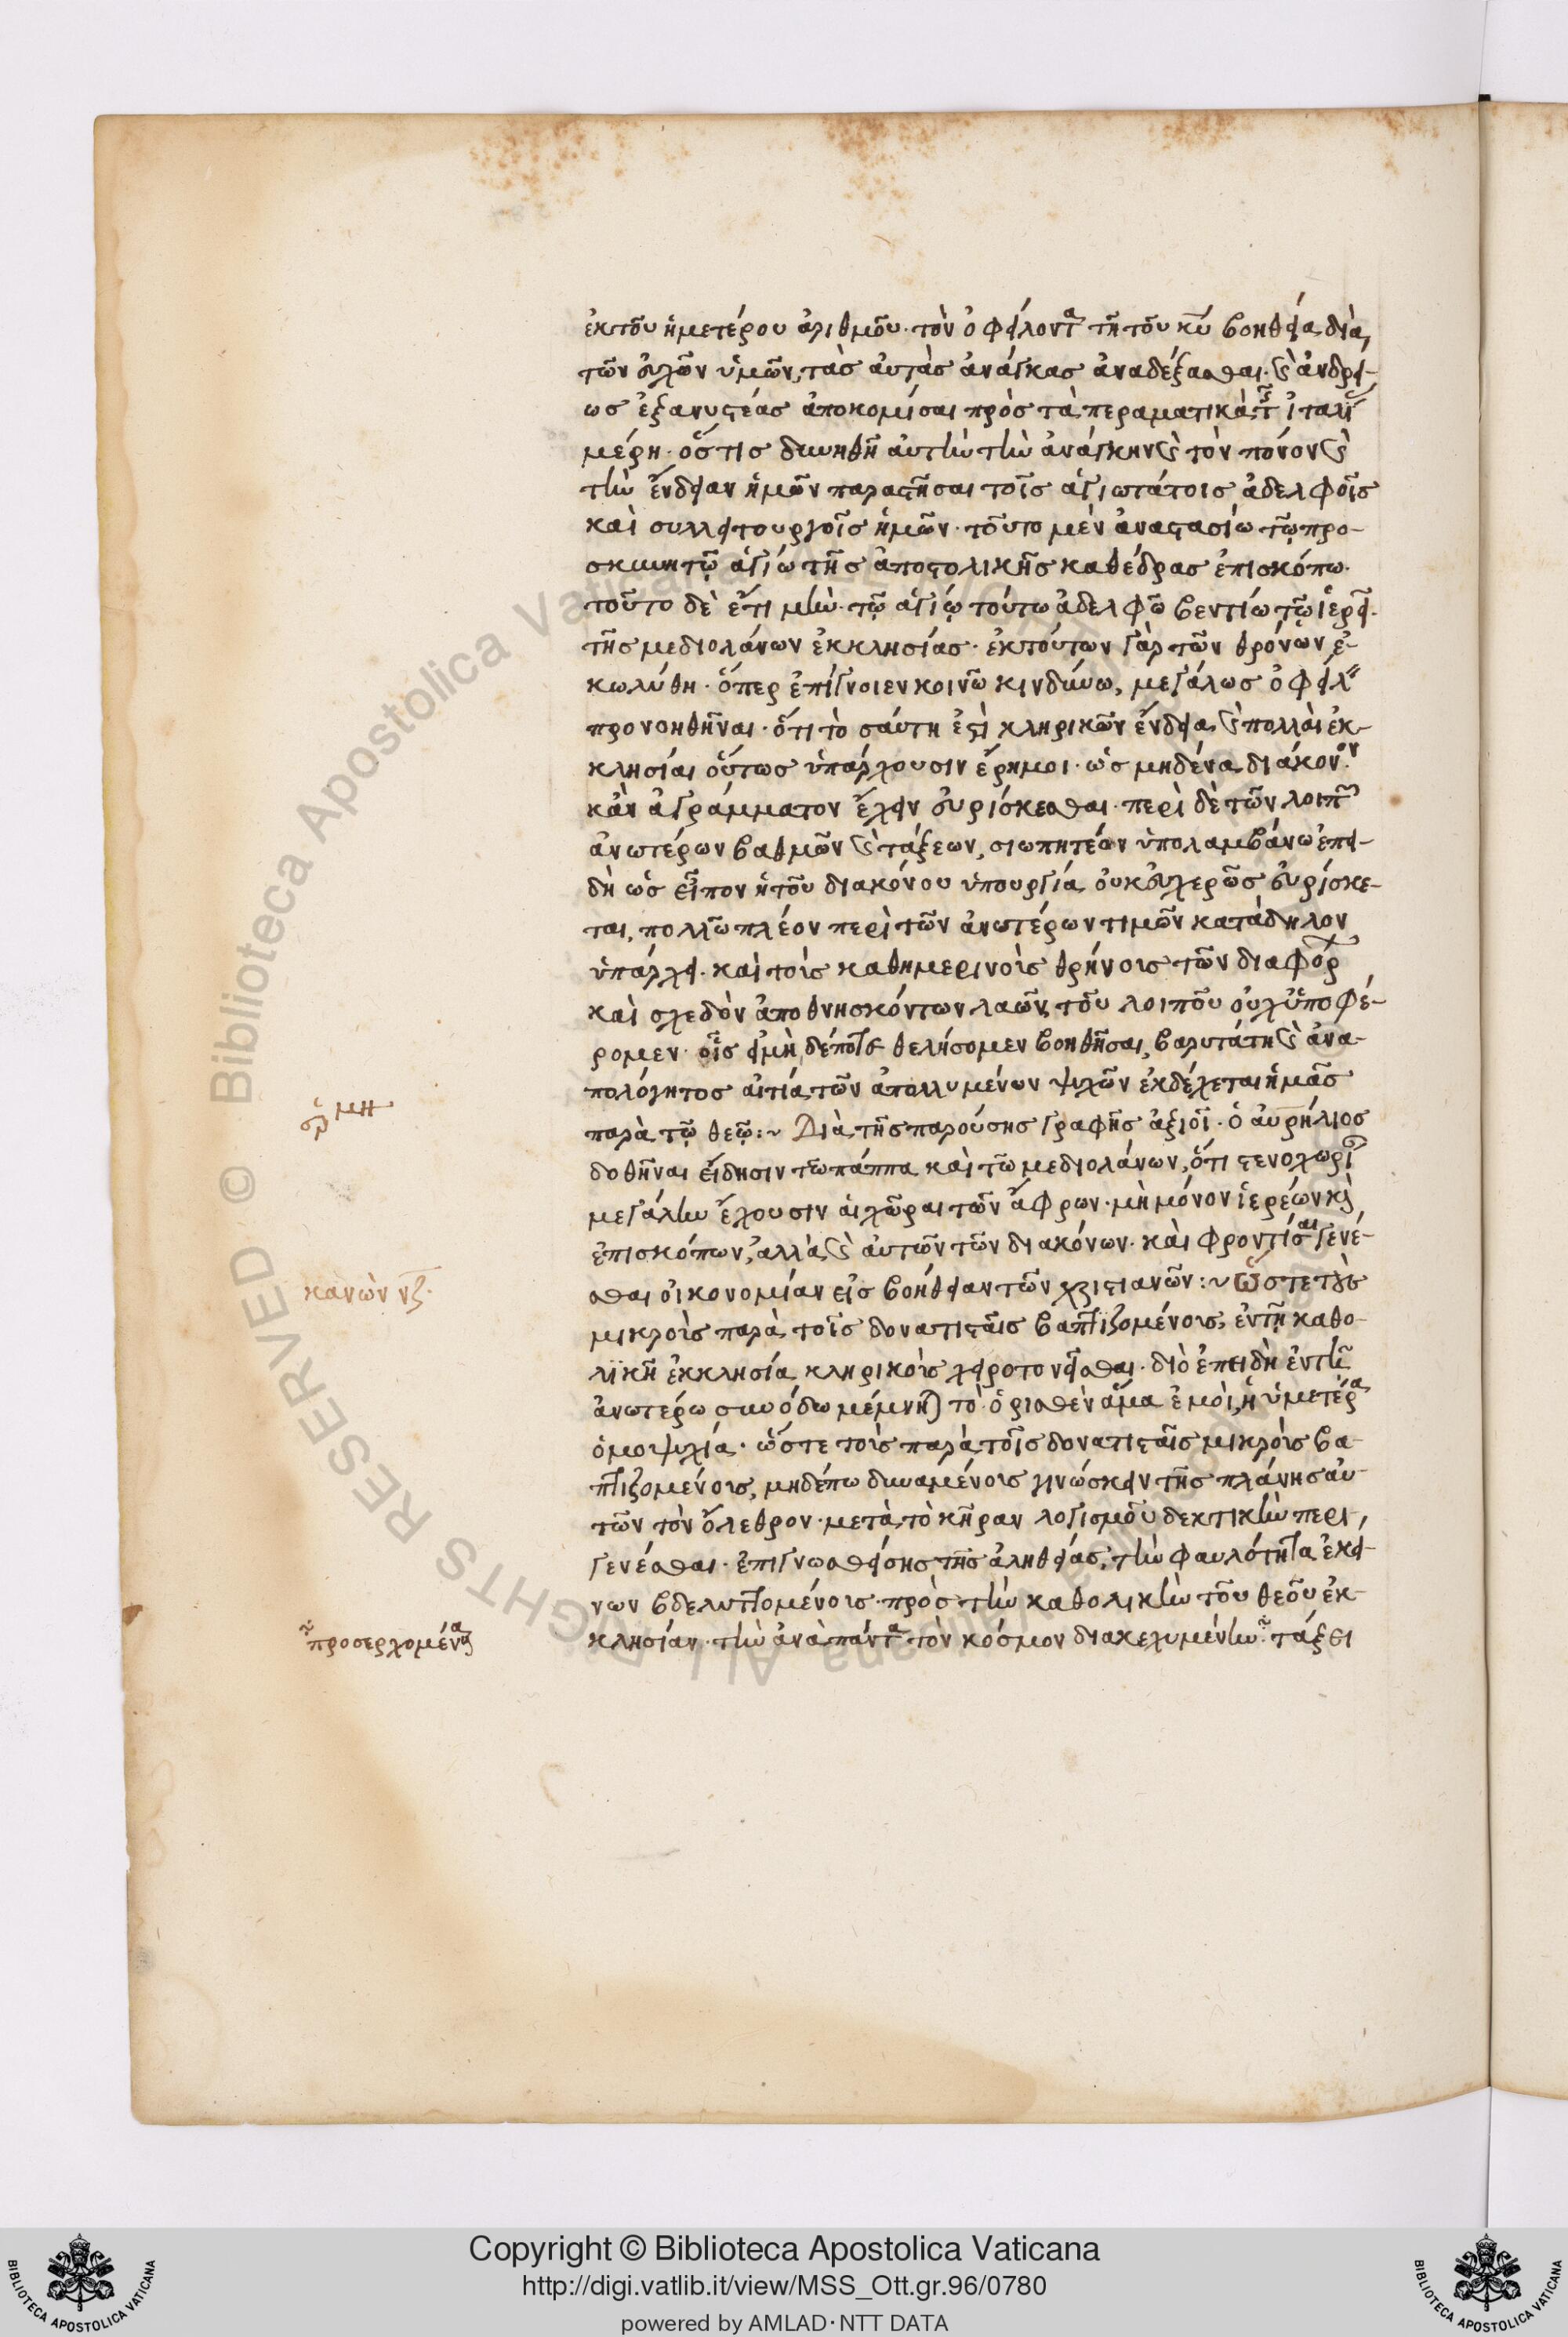 ἐκ τοῦ ἡμετέρου ἀριθμοῦ· τὸν ὀφείλοντα τῆ τοῦ κ̅υ̅ βοηθεία διὰ
τῶν εὐχῶν ὑμῶν, τὰσ αὐτὰσ ἀνάγκασ ἀναδέξασθαι· ϗ ἀνδρεί-
ωσ ἐξανυστέασ ἀποκομίσαι πρὸσ τὰ περαματικὰ τῆς ἰταλί
μέρη· ὅστισ δυνηθῆ αὐτὴν τὴν ἀνάγκην ϗ τὸν πόνον ϗ
τὴν ἔνδειαν ἡμῶν παραστῆσαι τοῖσ ἁγιωτάτοισ ἀδελφοῖσ
καὶ συλλειτουργοῖσ ἡμῶν· τοῦτο μὲν ἀναστασίω τῷ προ-
σκυνητῷ ἁγίω τῆσ ἀποστολικῆσ καθέδρασ ἐπισκόπω·
τοῦτο δὲ ἔτι μὴν· τῷ ἁγίῳ τούτω ἀδελφῶ βεντίω τῷ ἱερεῖ·
τῆσ μεδιολάνων ἐκκλησίασ· ἐκ τούτων γὰρ τῶν θρόνων ἐ-
κωλύθη· ὅπερ ἐπίγνοιεν κοινῶ κινδύνω, μεγάλωσ ὀφείλ
προνοηθῆναι· ὅτι τοσαύτη ἐστὶ κληρικῶν ἔνδεια, ϗ πολλαὶ ἐκ-
κλησίαι οὕτωσ ὑπάρχουσιν ἔρημοι· ὡσ μηδένα διάκονον·
κἂν ἀγράμματον ἔχειν εὑρίσκεσθαι· περὶ δὲ τῶν λοιπῶν
ἀνωτέρων βαθμῶν ϗ τάξεων, σιωπητέον ὑπολαμβάνω ἐπει-
δὴ ὡσ εἶπον ἡ τοῦ διακόνου ὑπουργία οὐκ εὐχερῶσ εὑρίσκε-
ται, πολλῶ πλέον περὶ τῶν ἀνωτέρων τιμῶν κατάδηλον
ὑπάρχει· καὶ τοὶσ καθημερινοὶσ θρήνοισ τῶν διαφόρ
καὶ σχεδὸν ἀποθνησκόντων λαῶν, τοῦ λοιποῦ οὐχ ὑποφέ-
ρομεν· οἷσ εἰ μὴ δέποτε θελήσομεν βοηθῆσαι, βαρυτάτη ϗ ἀνα-
πολόγητοσ αἰτία τῶν ἀπολλυμένων ψυχῶν ἐκδέχεται ἡμᾶσ
παρὰ τῷ θεῷ:~ Διὰ τῆσ παρούσησ γραφῆσ ἀξιοῖ· ὁ αὐρήλιοσ
δοθῆναι εἴδησιν τῶ πάππα καὶ τῶ μεδιολάνων, ὅτι στενοχωρί
μεγάλην ἔχουσιν αἱ χῶραι τῶν ἄφρων· μὴ μόνον ἱερέων κὶ
ἐπισκόπων, ἀλλὰ ϗ αὐτῶν τῶν διακόνων· καὶ φροντίσαι γενέ-
σθαι οἰκονομίαν εἰσ βοήθειαν τῶν χριστιανῶν:~ Ὥστε τοὺσ
μικροὶσ παρὰ τοῖσ δονατισταῖσ βαπτιζομένοισ, ἐν τῇ καθο-
λϊκῆ ἐκκλησία κληρικοὶσ χειροτονεῖσθαι· διὸ ἐπειδὴ ἐν τῆ
ἀνωτέρω συνόδω μέμνηται τὸ ὁρισθὲν ἅμα ἐμοὶ, ἡ ὑμετέρα
ὁμοιψυχία· ὥστε τοὶσ παρὰ τοῖσ δονατισταῖσ μικροὶσ βα-
πτιζομένοισ, μηδέπω δυναμένοισ γινώσκειν τῆσ πλάνησ αὐ-
τῶν τὸν ὄλεθρον· μετὰ τὸ κῆραν λογισμοῦ δεκτικὴν περι-
γενέσθαι· ἐπιγνωσθείσησ τῆσ ἀληθείασ, τὴν φαυλότητα ἐκεί-
νων βδελυττομένοισ· πρὸσ τὴν καθολικὴν τοῦ θεοῦ ἐκ-
κλησίαν· τὴν ἀνὰ πάντα τὸν κόσμον διακεχυμένην ~ τάξει
σχ μη
κανὼν νζ·
~ προσερχομένας
Copyright © Biblioteca Apostolica Vaticana
http://digi.vatlib.it/view/MSS_Ott.gr.96/0780
powered by AMLAD·NTT DATA
BIBLIOTECA APOSTOLICA VATICANA
BIBLIOTECA APOSTOLICA VATICANA